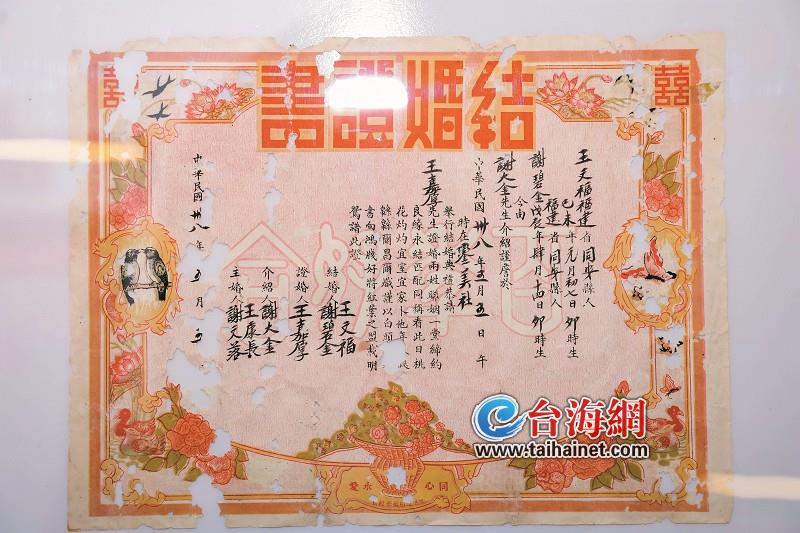 囍
結婚證書
囍
王文福福建省同安縣人
己未年元月初七日卯時生
福建省同安縣人
謝碧金戊辰年肆月十四日卯時生
今由
謝大金先生介紹謹詹於
中華民國卅八年五月五日午
時在
王嘉厚先生證婚
舉行結婚典禮恭請
先生證婚兩姓聯姻一堂締約
良緣永結匹配同稱看此日桃
花灼灼宜室宜家卜他年瓜瓞
緜緜爾昌爾熾謹以白頭之
書向鴻牋好將紅葉之盟載明
鴛譜此證
結婚人王文福
謝碧金
證婚人王嘉厚
介紹人謝大金
主婚人王康長
謝天
中華民國卅八年五月五
同心
永愛
台海網
www.taihainet.com